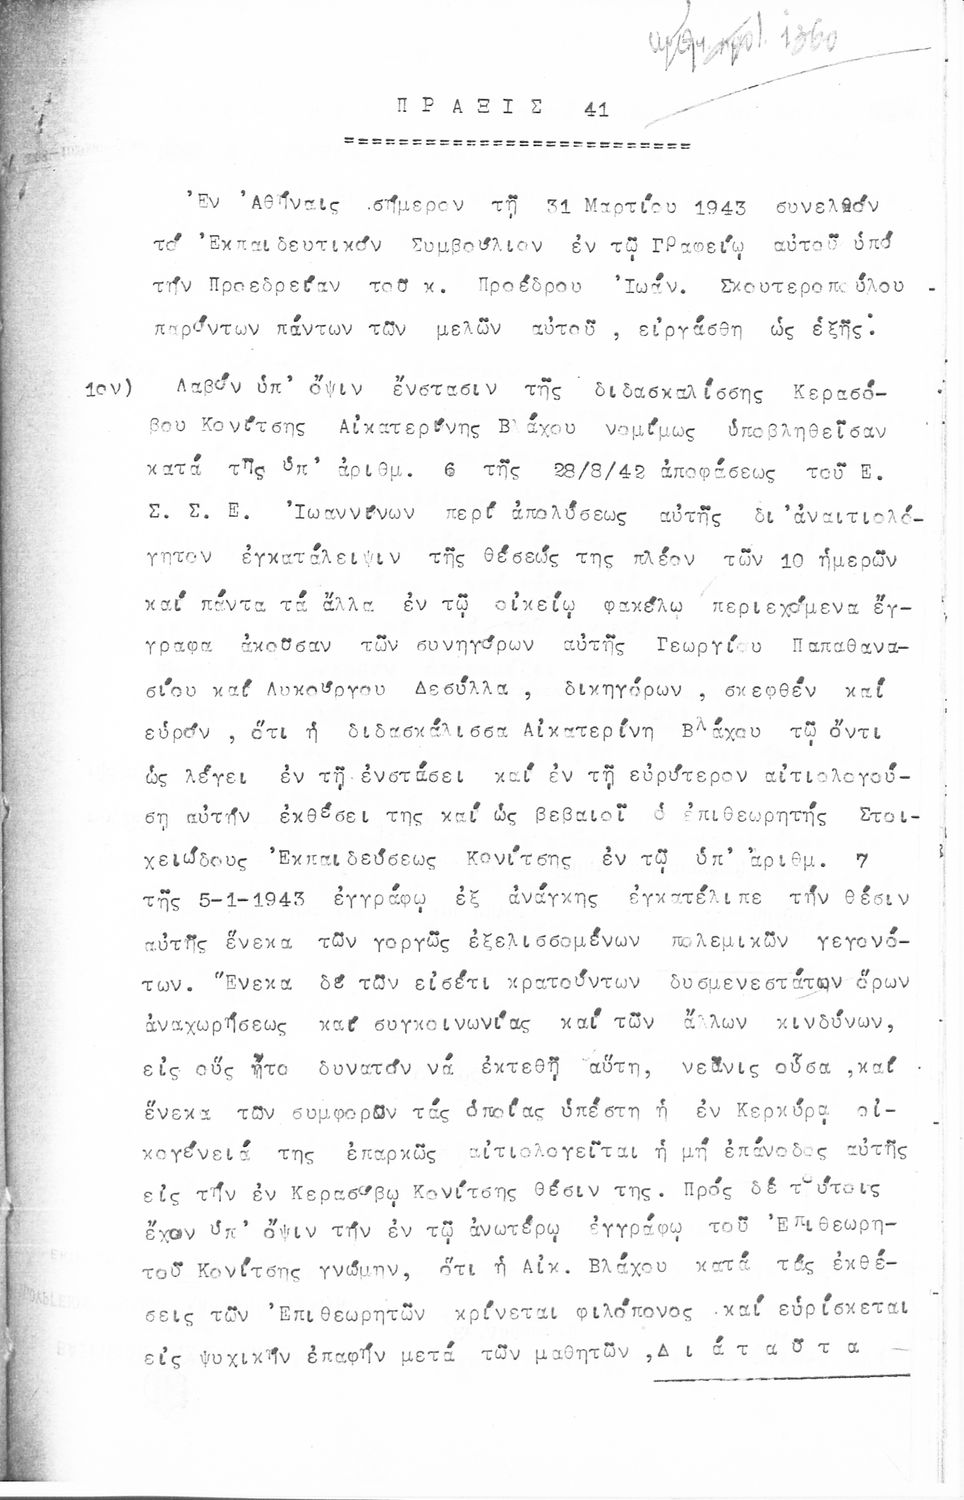 1360
Π Ρ Α Ξ Ι Σ 41
==========================
Ἐν Ἀθήναις σήμερον τῇ 31 Μαρτίου 1943 συνελθόν
τό Ἐκπαιδευτικόν Συμβούλιον ἐν τῷ Γραφείῳ αὐτοῦ ὑπό
τήν Προεδρείαν τοῦ κ. Προέδρου Ἰωάν. Σκουτεροπούλου
παρόντων πάντων τῶν μελῶν αὐτοῦ , εἰργάσθη ὡς ἑξῆς:
1ον) Λαβόν ὑπ' ὄψιν ἔνστασιν τῆς διδασκαλίσσης Κερασό-
βου Κονίτσης Αἰκατερίνης Βλάχου νομίμως ὑποβληθεῖσαν
κατά τῆς ὑπ' ἀριθμ. 6 τῆς 28/8/42 ἀποφάσεως τοῦ Ε.
Σ. Σ. Ε. Ἰωαννίνων περί ἀπολύσεως αὐτῆς δι'ἀναιτιολό-
γητον ἐγκατάλειψιν τῆς θέσεώς της πλέον τῶν 10 ἡμερῶν
καί πάντα τά ἄλλα ἐν τῷ οἰκείῳ φακέλῳ περιεχόμενα ἔγ-
γραφα ἀκοῦσαν τῶν συνηγόρων αὐτῆς Γεωργίου Παπαθανα-
σίου καί Λυκούργου Δεσύλλα , δικηγόρων , σκεφθέν καί
εὑρόν , ὅτι ἡ διδασκάλισσα Αἰκατερίνη Βλάχου τῷ ὄντι
ὡς λέγει ἐν τῇ ἐνστάσει καί ἐν τῇ εὐρύτερον αἰτιολογού-
σῃ αὐτήν ἐκθέσει της καί ὡς βεβαιοῖ ὁ ἐπιθεωρητής Στοι-
χειώδους Ἐκπαιδεύσεως Κονίτσης ἐν τῷ ὑπ' ἀριθμ. 7
τῆς 5-1-1943 ἐγγράφῳ ἐξ ἀνάγκης ἐγκατέλιπε τήν θέσιν
αὐτῆς ἕνεκα τῶν γοργῶς ἐξελισσομένων πολεμικῶν γεγονό-
των. Ἕνεκα δέ τῶν εἰσέτι κρατούντων δυσμενεστάτων ὅρων
ἀναχωρήσεως καί συγκοινωνίας καί τῶν ἄλλων κινδύνων,
εἰς οὕς ἦτο δυνατόν νά ἐκτεθῇ αὕτη, νεᾶνις οὖσα ,καί
ἕνεκα τῶν συμφορῶν τάς ὁποίας ὑπέστη ἡ ἐν Κερκύρᾳ οἰ-
κογένειά της ἐπαρκῶς αἰτιολογεῖται ἡ μή ἐπάνοδος αὐτῆς
εἰς τήν ἐν Κερασόβῳ Κονίτσης θέσιν της. Πρός δέ τούτοις
ἔχον ὑπ' ὄψιν τήν ἐν τῷ ἀνωτέρῳ ἐγγράφῳ τοῦ Ἐπιθεωρη-
τοῦ Κονίτσης γνώμην, ὅτι ἡ Αἰκ. Βλάχου κατά τάς ἐκθέ-
σεις τῶν Ἐπιθεωρητῶν κρίνεται φιλόπονος καί εὑρίσκεται
εἰς ψυχικήν ἐπαφήν μετά τῶν μαθητῶν ,Δ ι ά τ α ῦ τ α